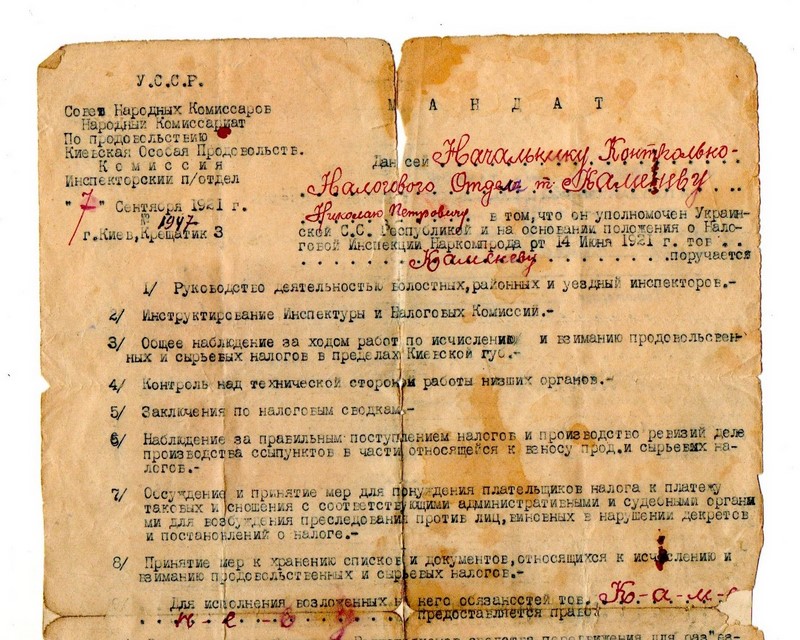 У.С.С.Р.
Совет Народных Комиссаров
Народный Комиссариат
По продовольствию
Киевская Особая Продовольств.
Комиссия
Инспекторский п/отдел
"7" Сентября 1921 г.
№ 1947
г.Киев,Крещатик 3
МАНДАТ
Дан сей Начальнику Контрольно-
Налогового Отдела т. Каменеву
Николаю Петровичу в том,что он уполномочен Украин-
ской С.С. Республикой и на основании положения о Нало-
говой Инспекции Наркомпрода от 14 Июня 1921 г. тов . .
Каменеву . . . . . . . . .поручается
1/ Руководство деятельностью волостных,районных и уездный инспекторов.-
2/ Инструктирование Инспектуры и Налоговых Комиссий.-
3/ Общее наблюдение за ходом работ по исчислению и взиманию продовольствен-
ных и сырьевых налогов в пределах Киевской губ.-
4/ Контроль над технической стороной работы низших органов.-
5/ Заключения по налоговым сводкам.-
6/ Наблюдение за правильным поступлением налогов и производство ревизий дела
производства ссыпунктов в части относящейся к взносу прод.и сырьевых на-
логов.-
7/ Обсуждение и принятие мер для понуждения плательщиков налога к платежу
таковых и сношения с соответствующими административными и судебными органа
ми для возбуждения преследования против лиц,виновных в нарушении декретов
и постановлений о налоге.-
8/ Принятие мер к хранению списков и документов,относящихся к исчислению и
взиманию продовольственных и сырьевых налогов.-
Для исполнения возложенных на него обязаностей тов. К-а-м-е
н е в у предоставляется право:
средства передвижения для раз"ез-